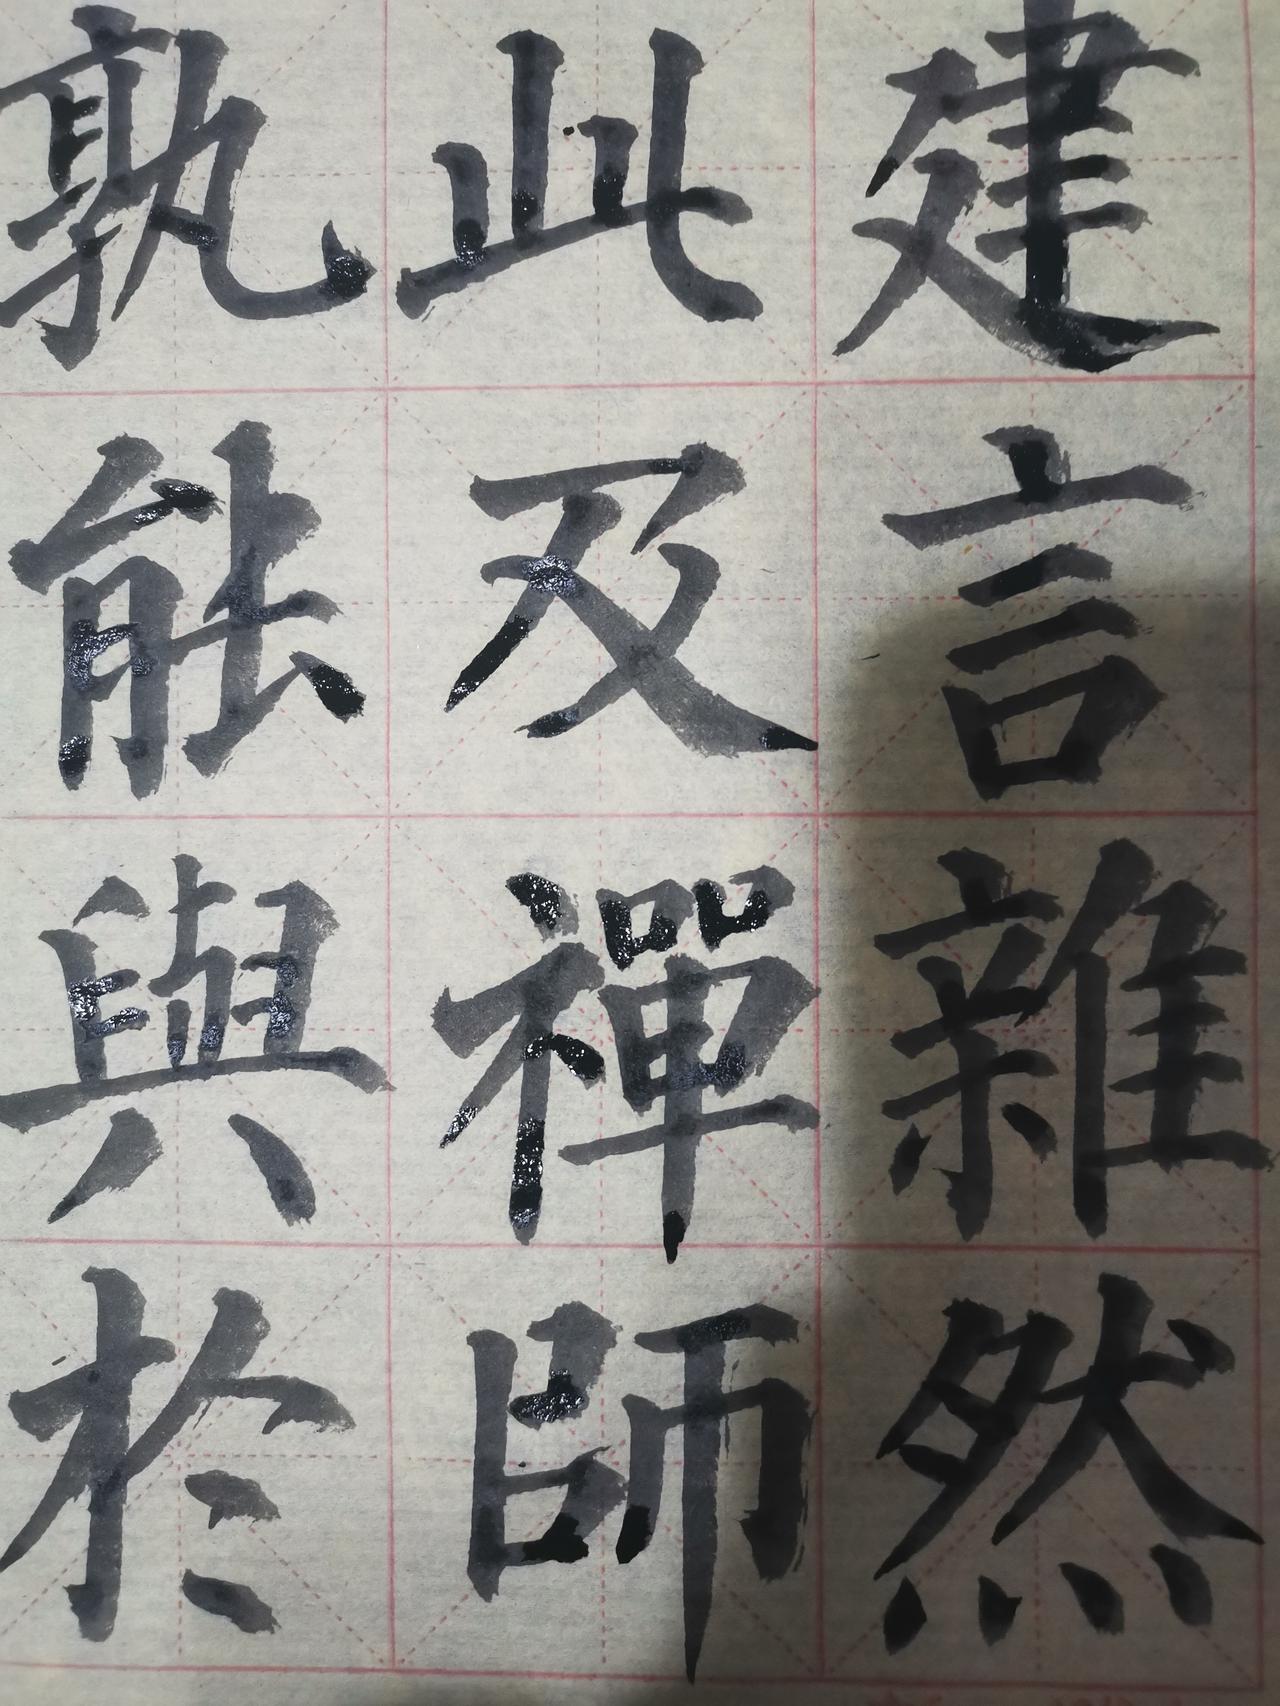 建言雜然
此及禪師
孰能與於